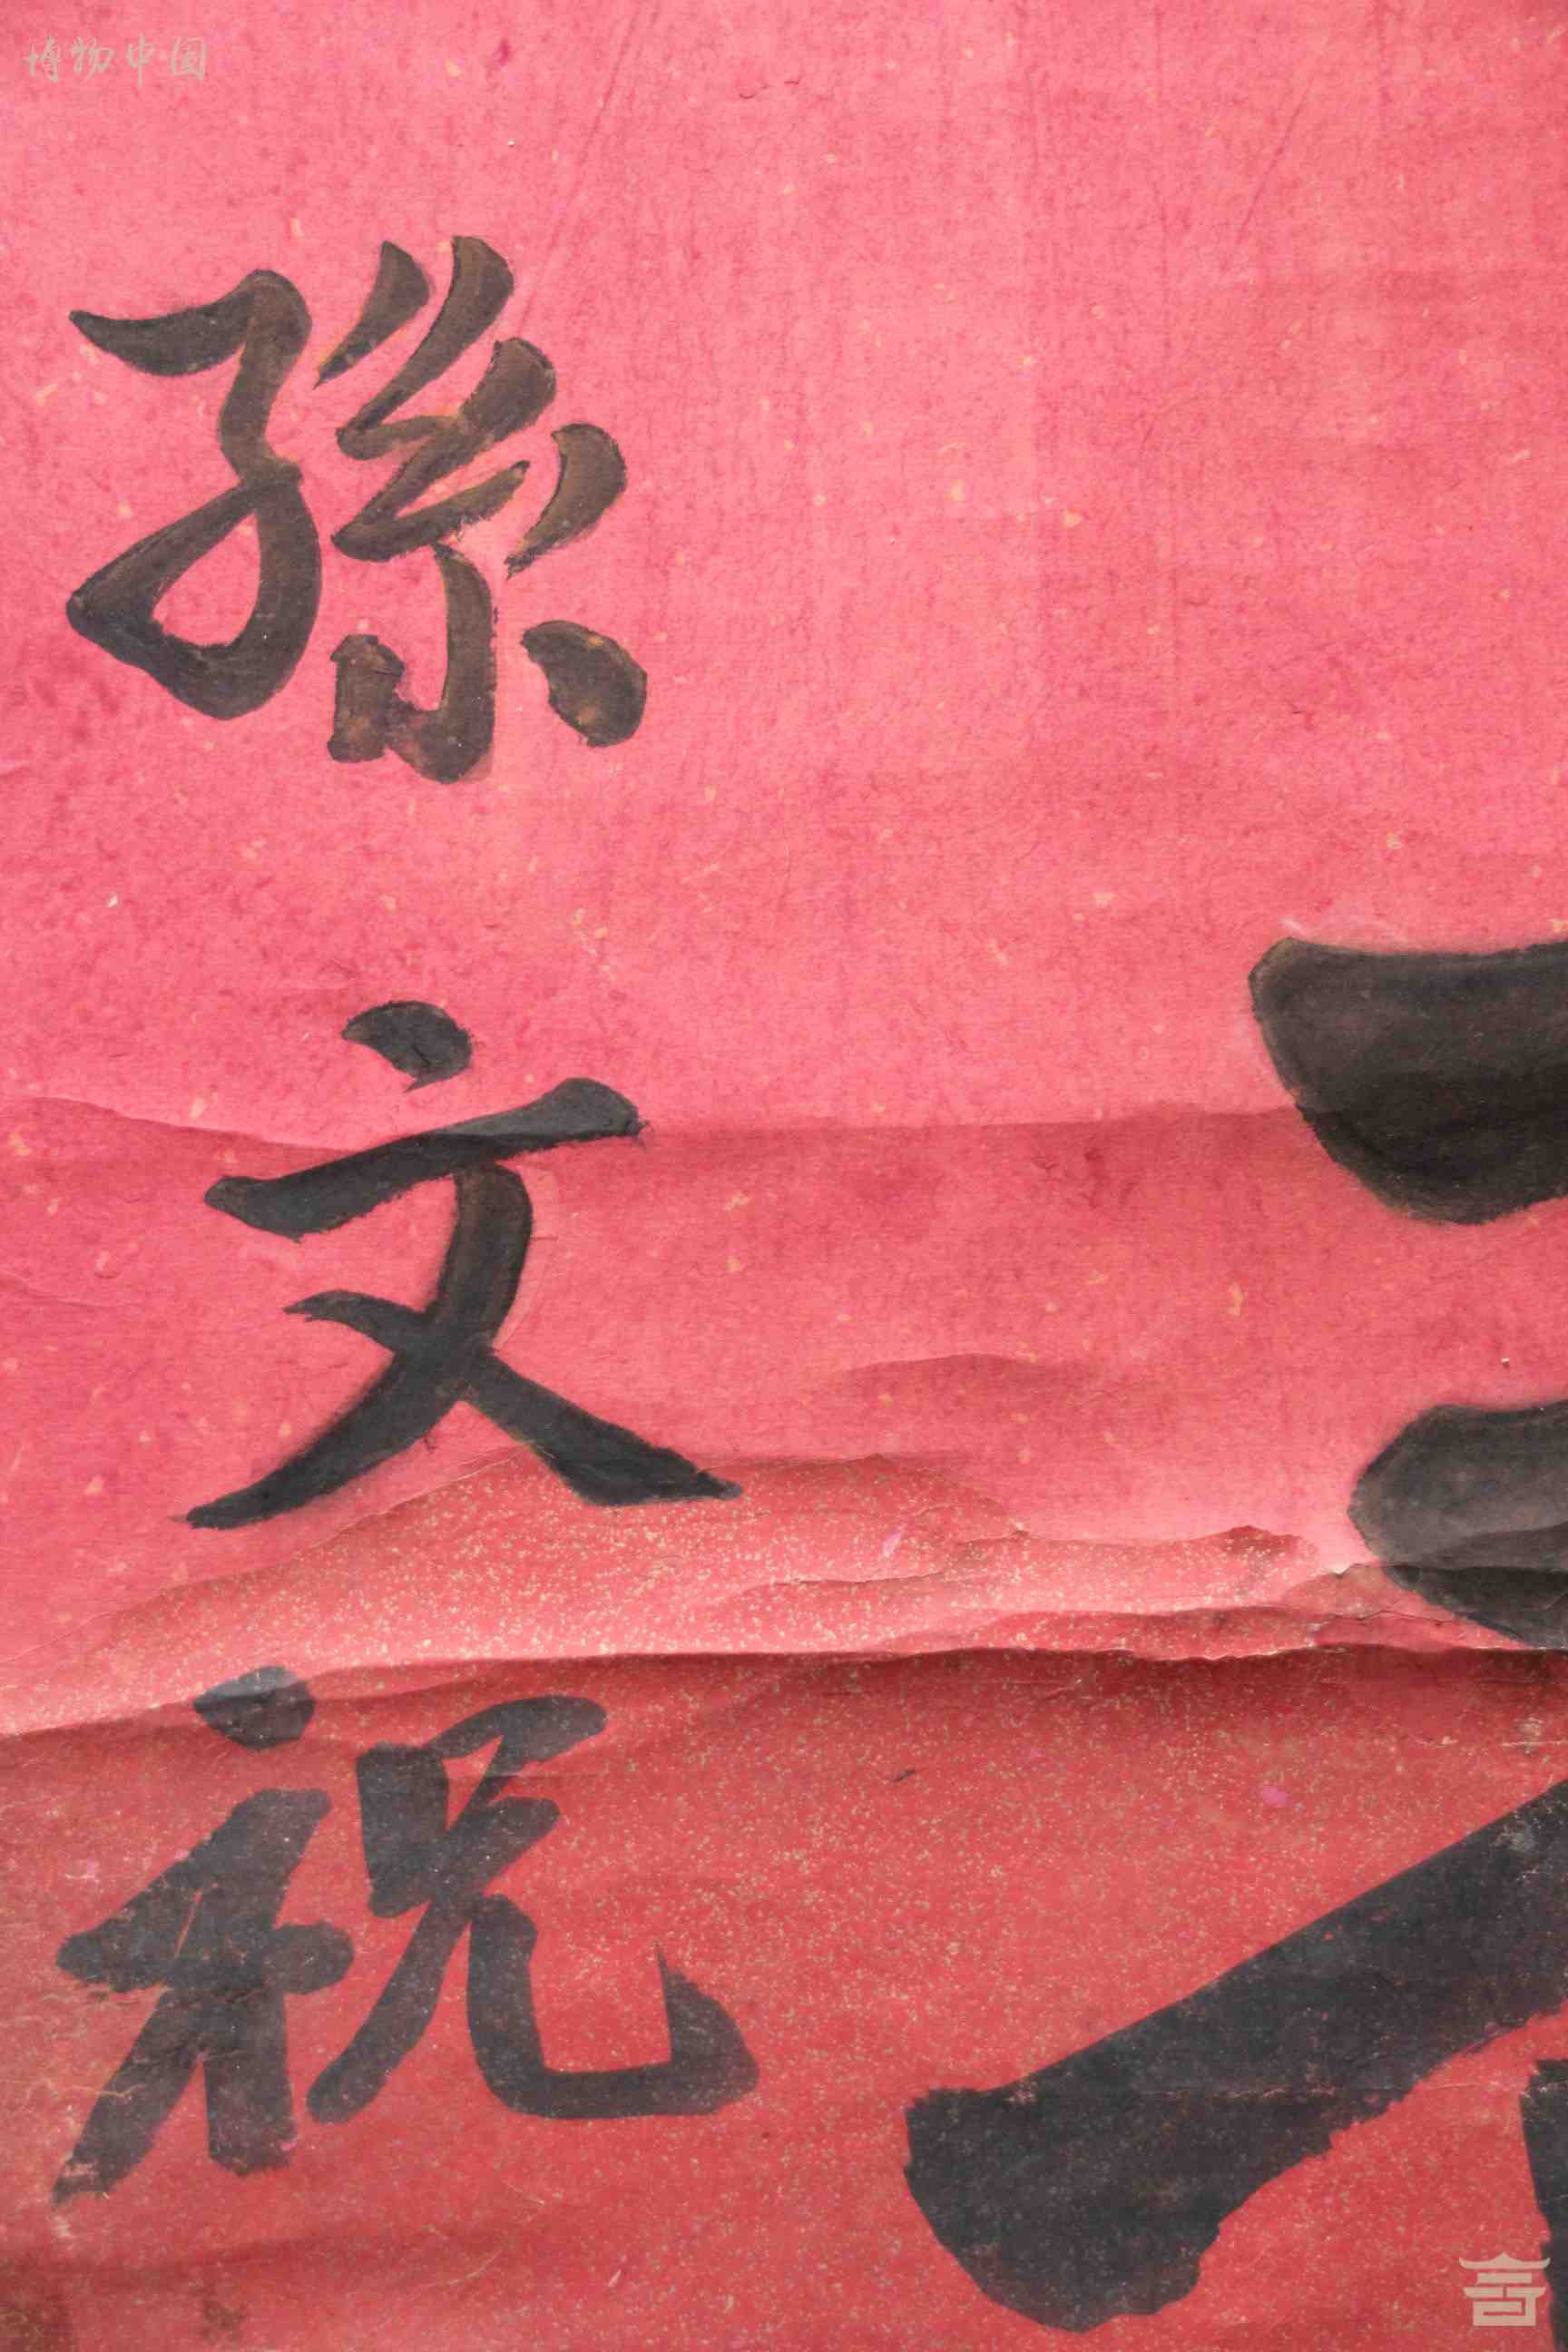 博物中国
孫文祝